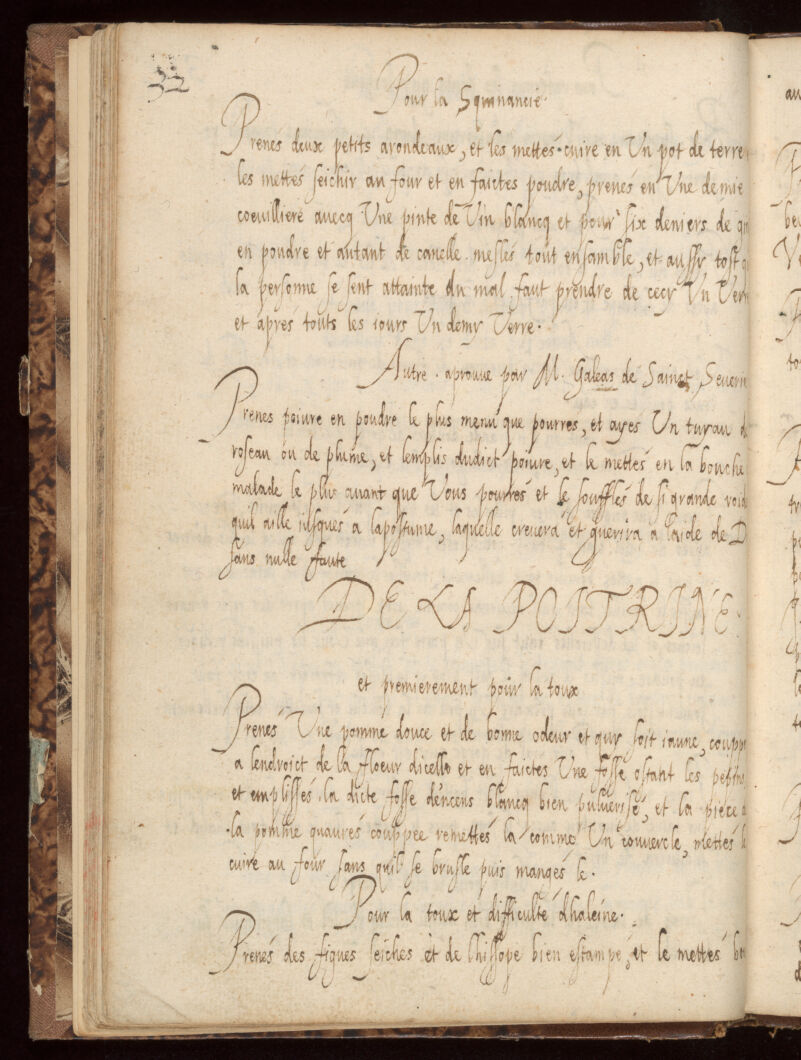 32
Pour la Squinancie.
Prenes deux petits arondeaux, et les mettes cuire en Un pot de terre
les mettes seichir au four et en faictes poudre, prenes en Une demie
coeuilliere auecq Une pinte de Vin blancq et pour six deniers de
en poudre et autant de canelle mesles tout ensamble, et aussy tost q
la personne se sent attainte du mal faut prendre de cecy Un Verr
et apres touts les iours Un demy Verre.
Autre. aprouue par M. Galeas de Sainct Seuerin
Prenes poiure en poudre le plus menu que pourres, et ayes Un tuyau d
roseau ou de plume, et lemplis dudict poiure, et le mettes en la bouche
malade le plus auant que Vous pourres et le souffles de si grande roid
quil aille iusques a lapostume, laquelle creuera et guerira a laide de D
sans nulle faute
DE LA POITRINE.
et premierement pour la toux
Prenes Une pomme douce et de bonne odeur et quy soit iaune, couppe
a lendroict de la floeur dicelle et en faictes Une fosse ostant les pepins
et emplisses la dicte fosse dencens blancq bien puluerisé, et la piece d
la pomme quaures couppee remettes la comme Un couuercle, mettes l
cuire au four sans quil se brusle puis manges le.
Pour la toux et difficulte dhaleine.
Prenes des figues seiches et de lhissope bien estampe, et le mettes bo